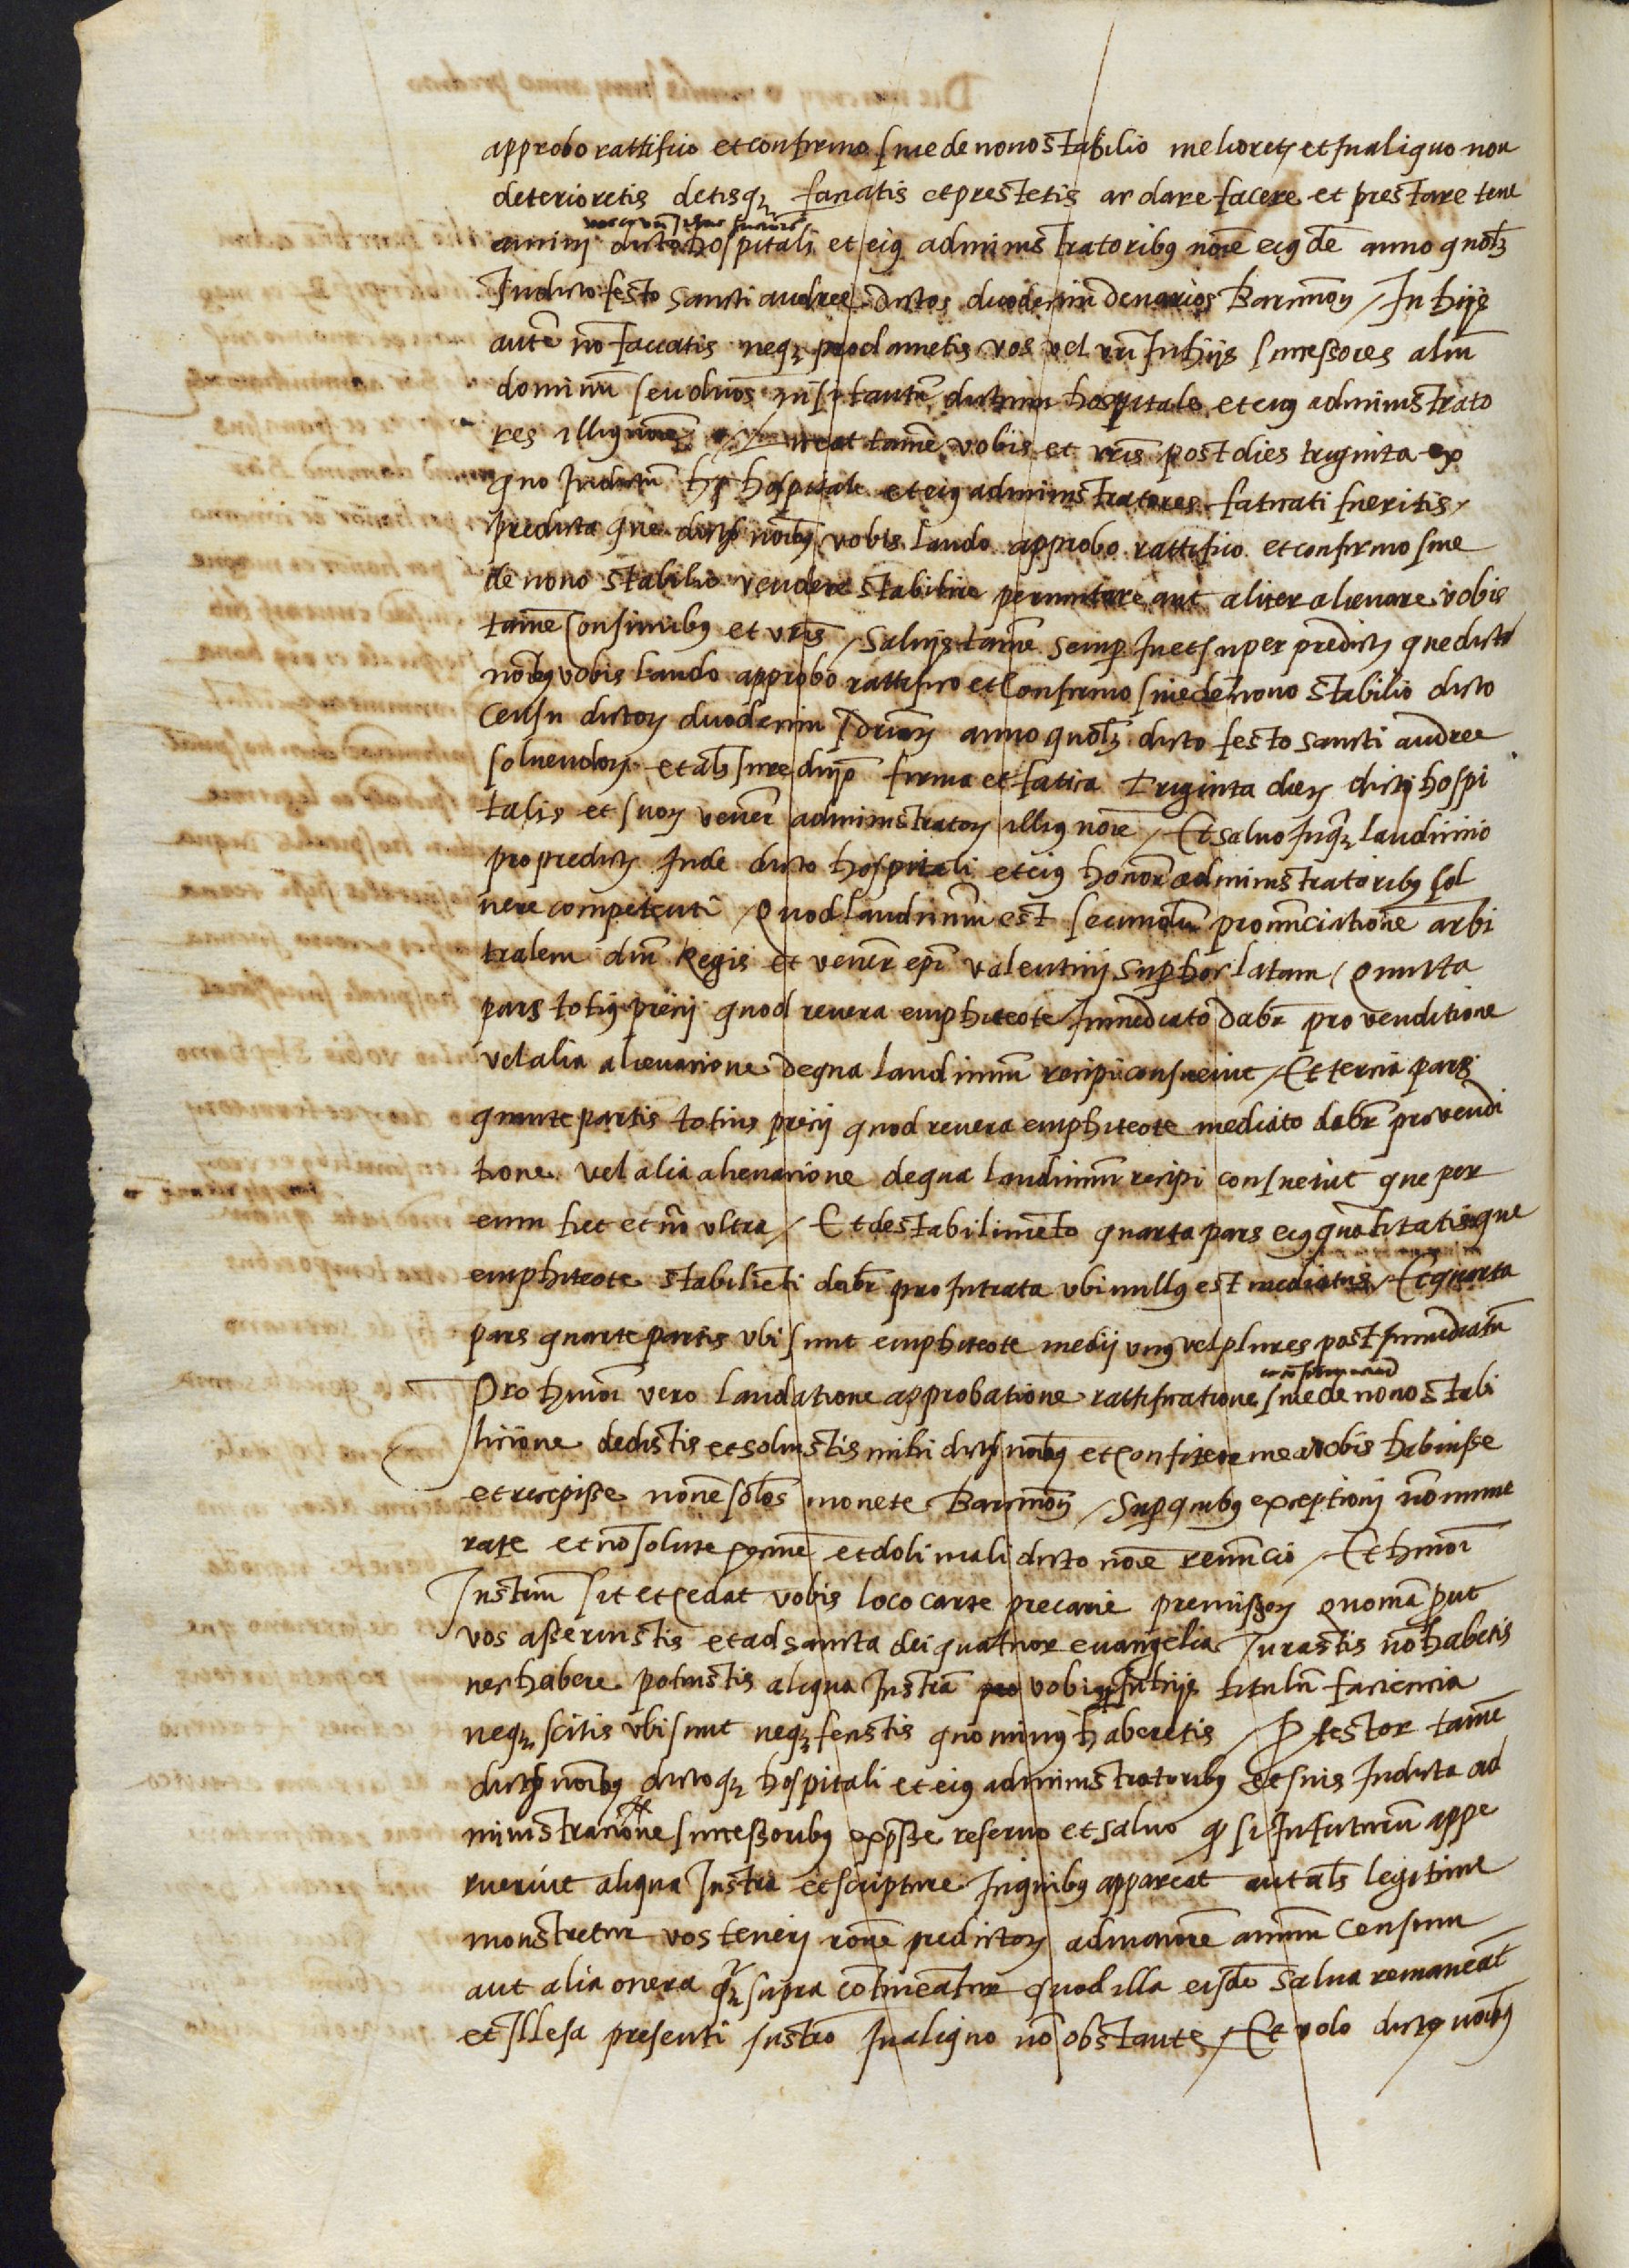 approbo rattifico et confirmo sive de novo stabilio melioretis et In aliquo non
deterioretis detisq3 faciatis et prestetis ac dare facere et prestare tene
amini dicto hospitali et eiꝰ administratoribꝰ noīe eiꝰdē anno quolꝫ
In dicto festo sancti andree dictos duodecim denarios Barcinoñ / In hijs
autē nō faciatis neqꝫ proclametis vos vel vr̄i In hijs successores aliū
dominū seu dnōs nisi tantū dictum hospitale et eiꝰ administrato
res illiꝰ noīe liceat tamē vobis et vr̄is post dies triginta ex
quo In dictū hospitale et eiꝰ administratores faticati fueritis
predicta que dictis noībꝰ vobis laudo approbo rattifico et confirmo sive
de novo stabilio vendere stabilire permutare aut aliter alienare vobis
tamē consimilibꝰ et vr̄is / Salvis tamē semꝑ In et super predictis que dictis
noībꝰ vobis laudo approbo rattifico et confirmo sive de novo stabilio dicto
censu dictoꝝ duodecim dr̄ioꝝ anno quolꝫ dicto festo sancti andree
solvendoꝝ et als Iure dnīo firma et fatica triginta dieꝝ dicti hospi
talis et suoꝝ vener administratoꝝ illiꝰ noīe / Et salvo Inqꝫ laudimio
pro predictis Inde dicto hospitali et eiꝰ honor administratoribꝰ sol
vere competenti / Quod laudimiū est secundum pronūciationē arbi
tralem dnī Regis et vener epī valentini suꝑ hoc latam / Quarta
pars totiꝰ precij quod revera emphiteote Inmediato dabr̄ pro venditione
vel alia alienatione de qua laudimiū recipi consuevit / Et tercia pars
quarte partis totius precij quod revera emphiteote mediato dabr̄ pro vendi
tione vel alia alienatione de qua laudimiū recipi consuevit que per
eum fiet et nō ultra / Et de stabilimēto quarta pars eiꝰ quātitatis que
emphiteote stabiliēti dabr̄ pro Intrata ubi nullꝰ est mediatus / Et quarta
pars quarte partis ubi sunt emphiteote medij unꝰ vel plures post Inmediatū
Pro hmōi vero laudatione approbatione rattificatione sive de novo stabi
licione dedistis et solvistis mihi dictis noībꝰ et confiteor me a vobis habuisse
et recepisse novē solos monete Barcinoñ / Suꝑ quibꝰ exceptioni nō nume
rate et nō solute peccunie et doli mali dicto noīe renūcio / Et hmōi
Instrm̄ sit et cedat vobis loco carte precarie premissoꝝ quoniā put
vos asseruistis et ad sancta dei quatuor evangelia Iurastis nō habetis
nec habere potuistis aliqua Instrā vobis In hijs titulū faciencia
neqꝫ scitis ubi sunt neqꝫ fecistis quominꝰ haberetis / Ꝓtestor tamē
dictis noībꝰ dictoqꝫ hospitali et eiꝰ administratoribꝰ et suis In dicta ad
ministracione successoribꝰ expsse reservo et salvo ꝙ si In futurū appa
ruerint aliqua Instrā et scripture In quibꝰ appareat aut als legitime
monstretur vos teneri rōne predictoꝝ ad maiorē annuū censum
aut alia onera supra cōtineātur quod illa eisdē salva remaneāt
et Illesa presenti Instrō In aliquo nō obstante / Et volo dictis noībꝰ